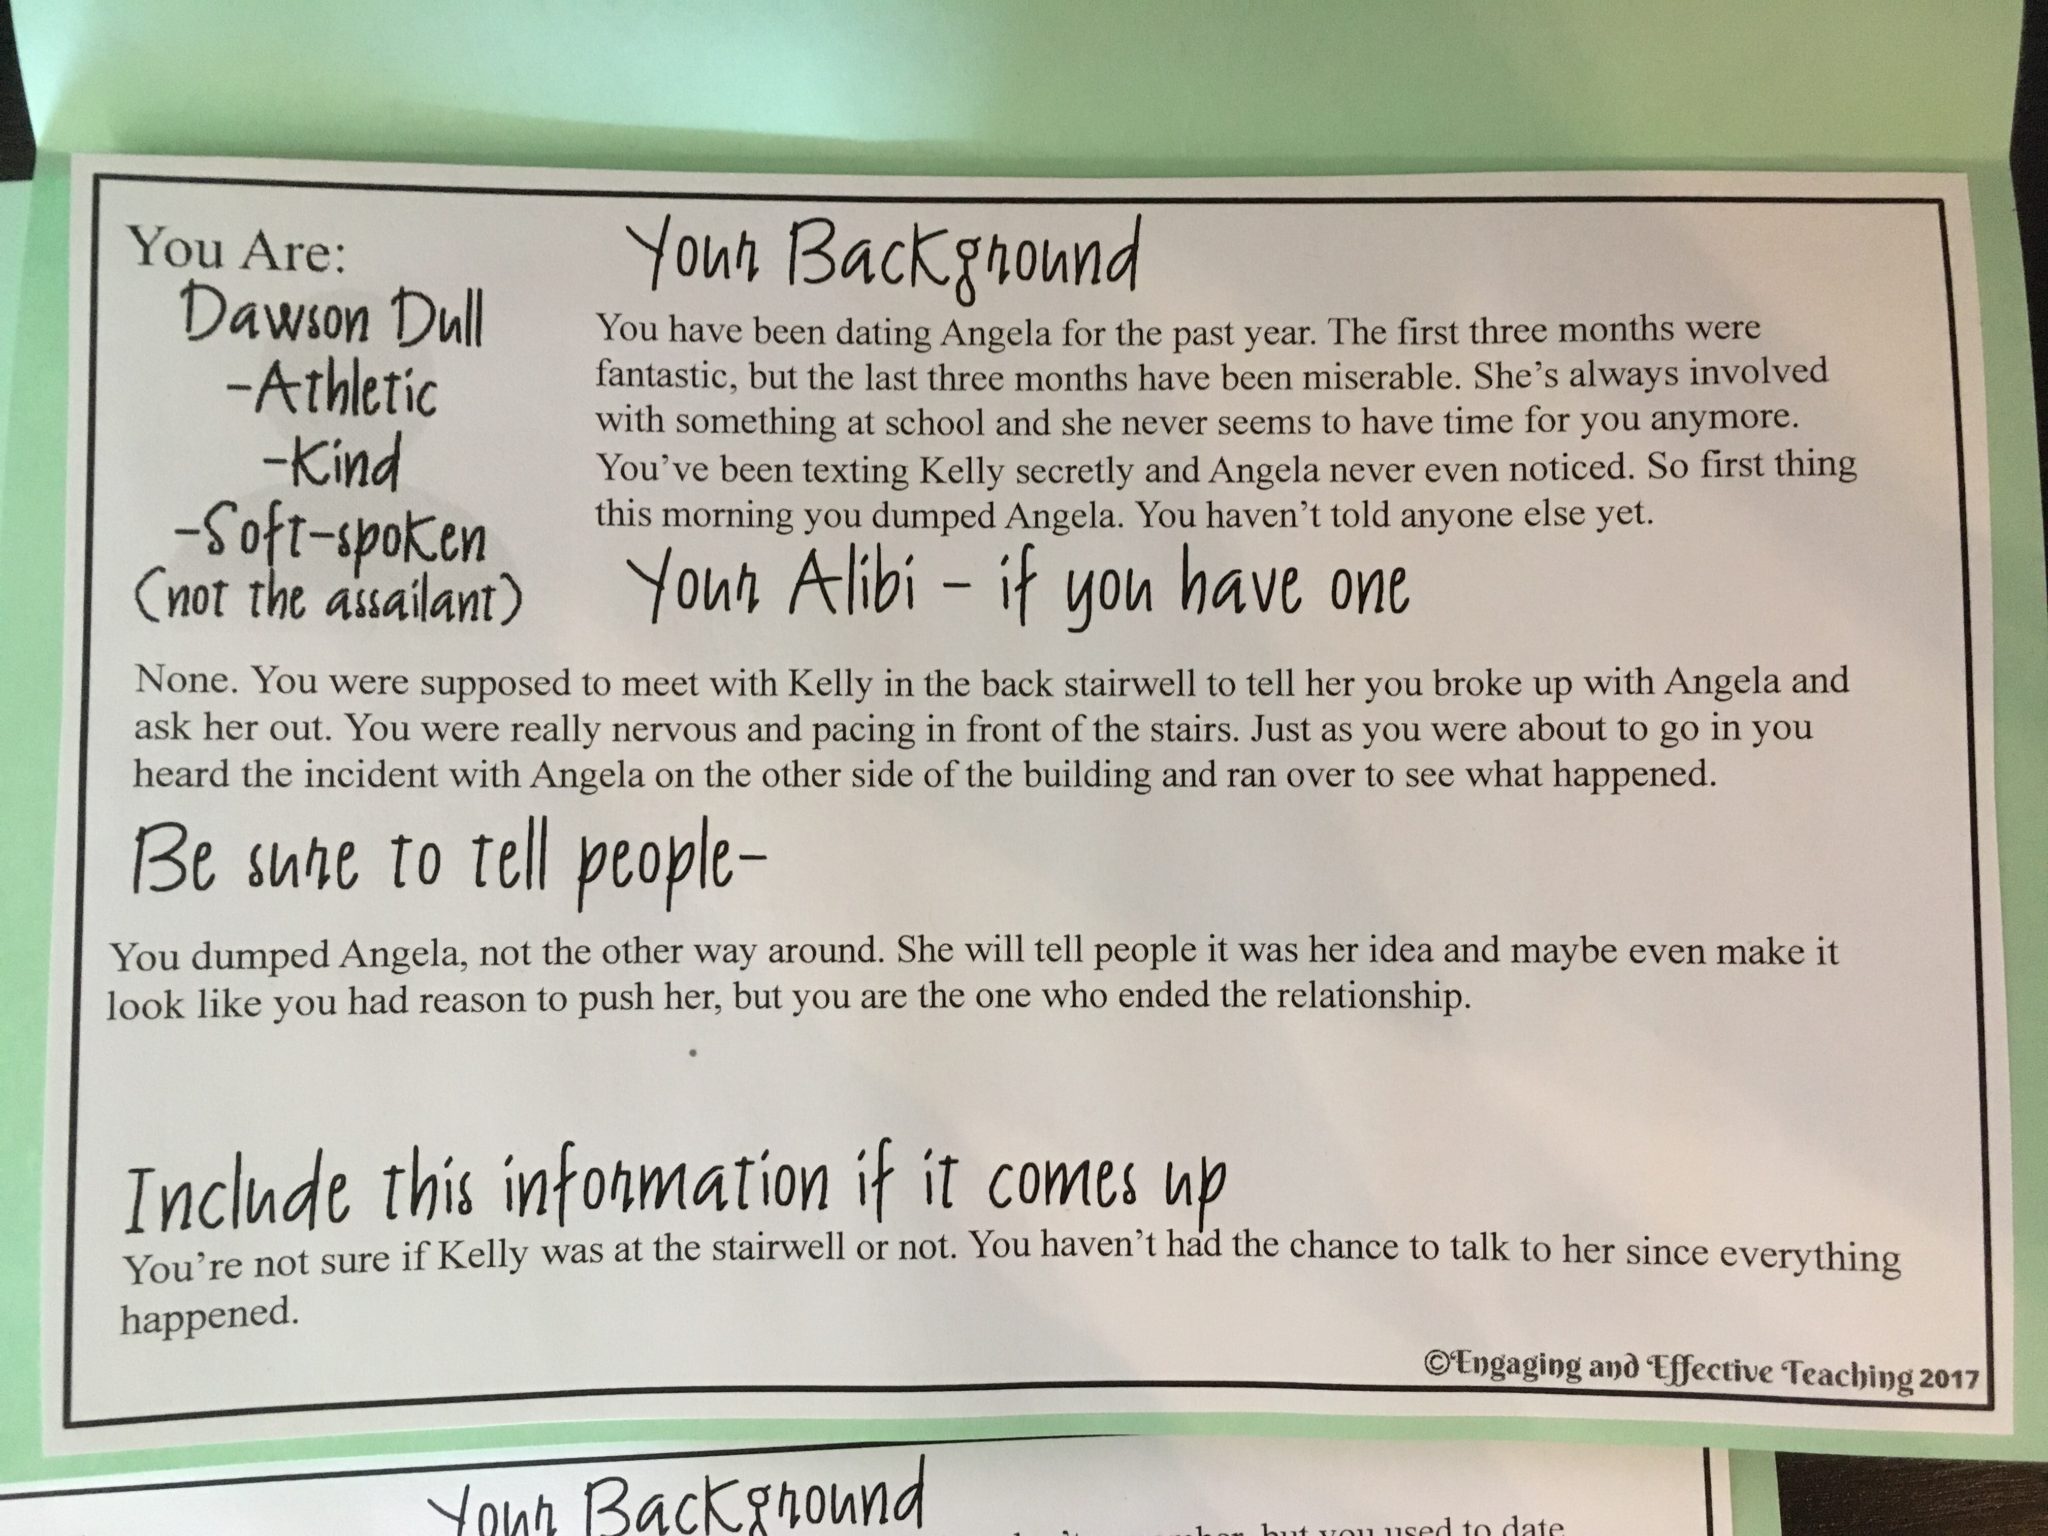 You Are:
Dawson Dull
-Athletic
-Kind
-Soft-spoken
(not the assailant)
Your Background
You have been dating Angela for the past year. The first three months were
fantastic, but the last three months have been miserable. She's always involved
with something at school and she never seems to have time for you anymore.
You've been texting Kelly secretly and Angela never even noticed. So first thing
this morning you dumped Angela. You haven't told anyone else yet.
Your Alibi - if you have one
None. You were supposed to meet with Kelly in the back stairwell to tell her you broke up with Angela and
ask her out. You were really nervous and pacing in front of the stairs. Just as you were about to go in you
heard the incident with Angela on the other side of the building and ran over to see what happened.
Be sure to tell people-
You dumped Angela, not the other way around. She will tell people it was her idea and maybe even make it
look like you had reason to push her, but you are the one who ended the relationship.
Include this information if it comes up
You're not sure if Kelly was at the stairwell or not. You haven't had the chance to talk to her since everything
happened.
©Engaging and Effective Teaching 2017
Your Background
but you used to date